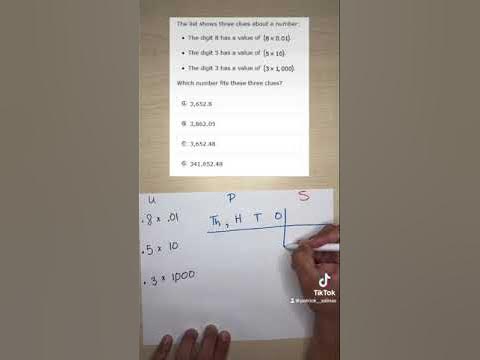 The list shows three clues about a number:
• The digit 8 has a value of (8 × 0.01).
• The digit 5 has a value of (5 × 10).
• The digit 3 has a value of (3 × 1,000).
Which number fits these three clues?
3,652.8
3,862.05
3,652.48
341,652.48
U P S
.8 x .01 Th, H T O
.5 x 10
.3 x 1000
TikTok